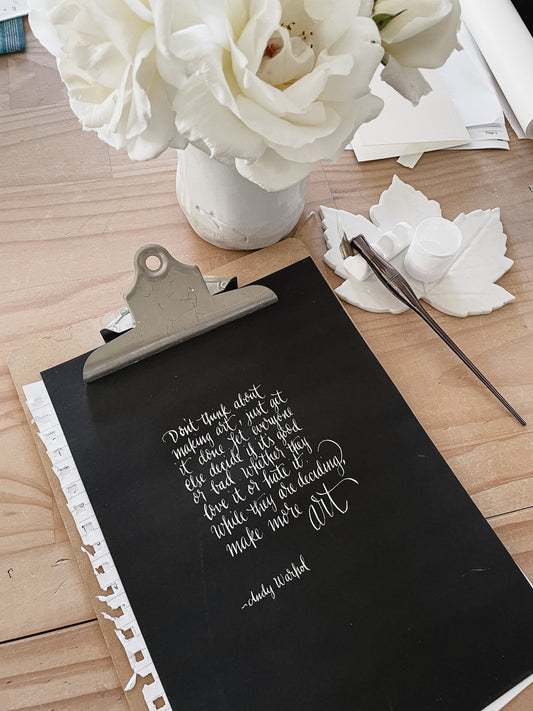 Don't think about
making art, just get
it done. Let everyone
else decide if it's good
or bad, whether they
love it or hate it.
While they are deciding,
make more art
~Andy Warhol